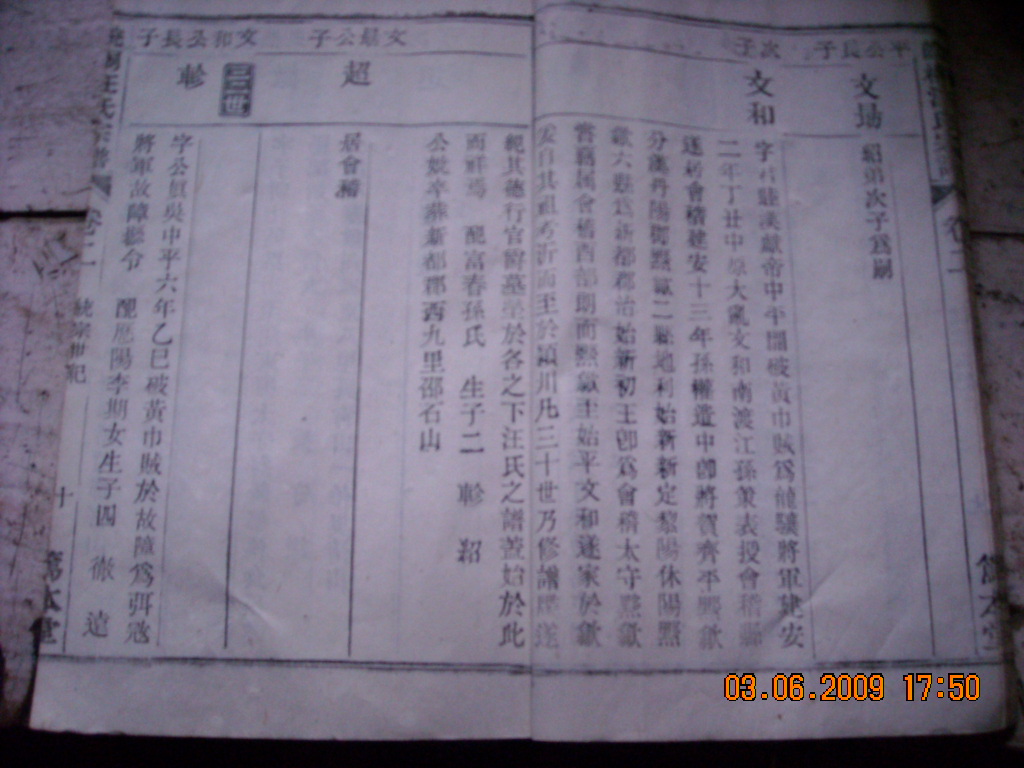 平公長子
文暘
紹弟次子爲嗣
次子
文和
漢獻帝中平間破黃巾賊爲龍驤將軍建安
二年丁丑中原大亂文和南渡江孫策表授會稽
會稽建安十三年孫權遣中郎將賀齊平黟歙
分漢丹陽黟二縣地利始新新定黎陽休陽黟
歙六縣爲新都郡治始新初王郎爲會稽太守黟歙
舊屬會稽西部朗而黟歙士始平文和遂家於歙
其祖考沂而至於潁川凡三十世乃修譜遂
紀其德行官爵墓於各之下汪氏之譜葢始於此
而祥焉 配富春孫氏 生子二 軫 紹
公歿卒葬新都郡西九里邵石山
文公子
超
居會稽
三三世
文和公長子
軫
字公吳中平六年乙巳破黃巾賊於故障爲弭
將軍故障令 配陽李期女生子四 徹 遠
汪氏宗譜
卷二
統宗世紀
十
卷二
03.06.2009 17:50